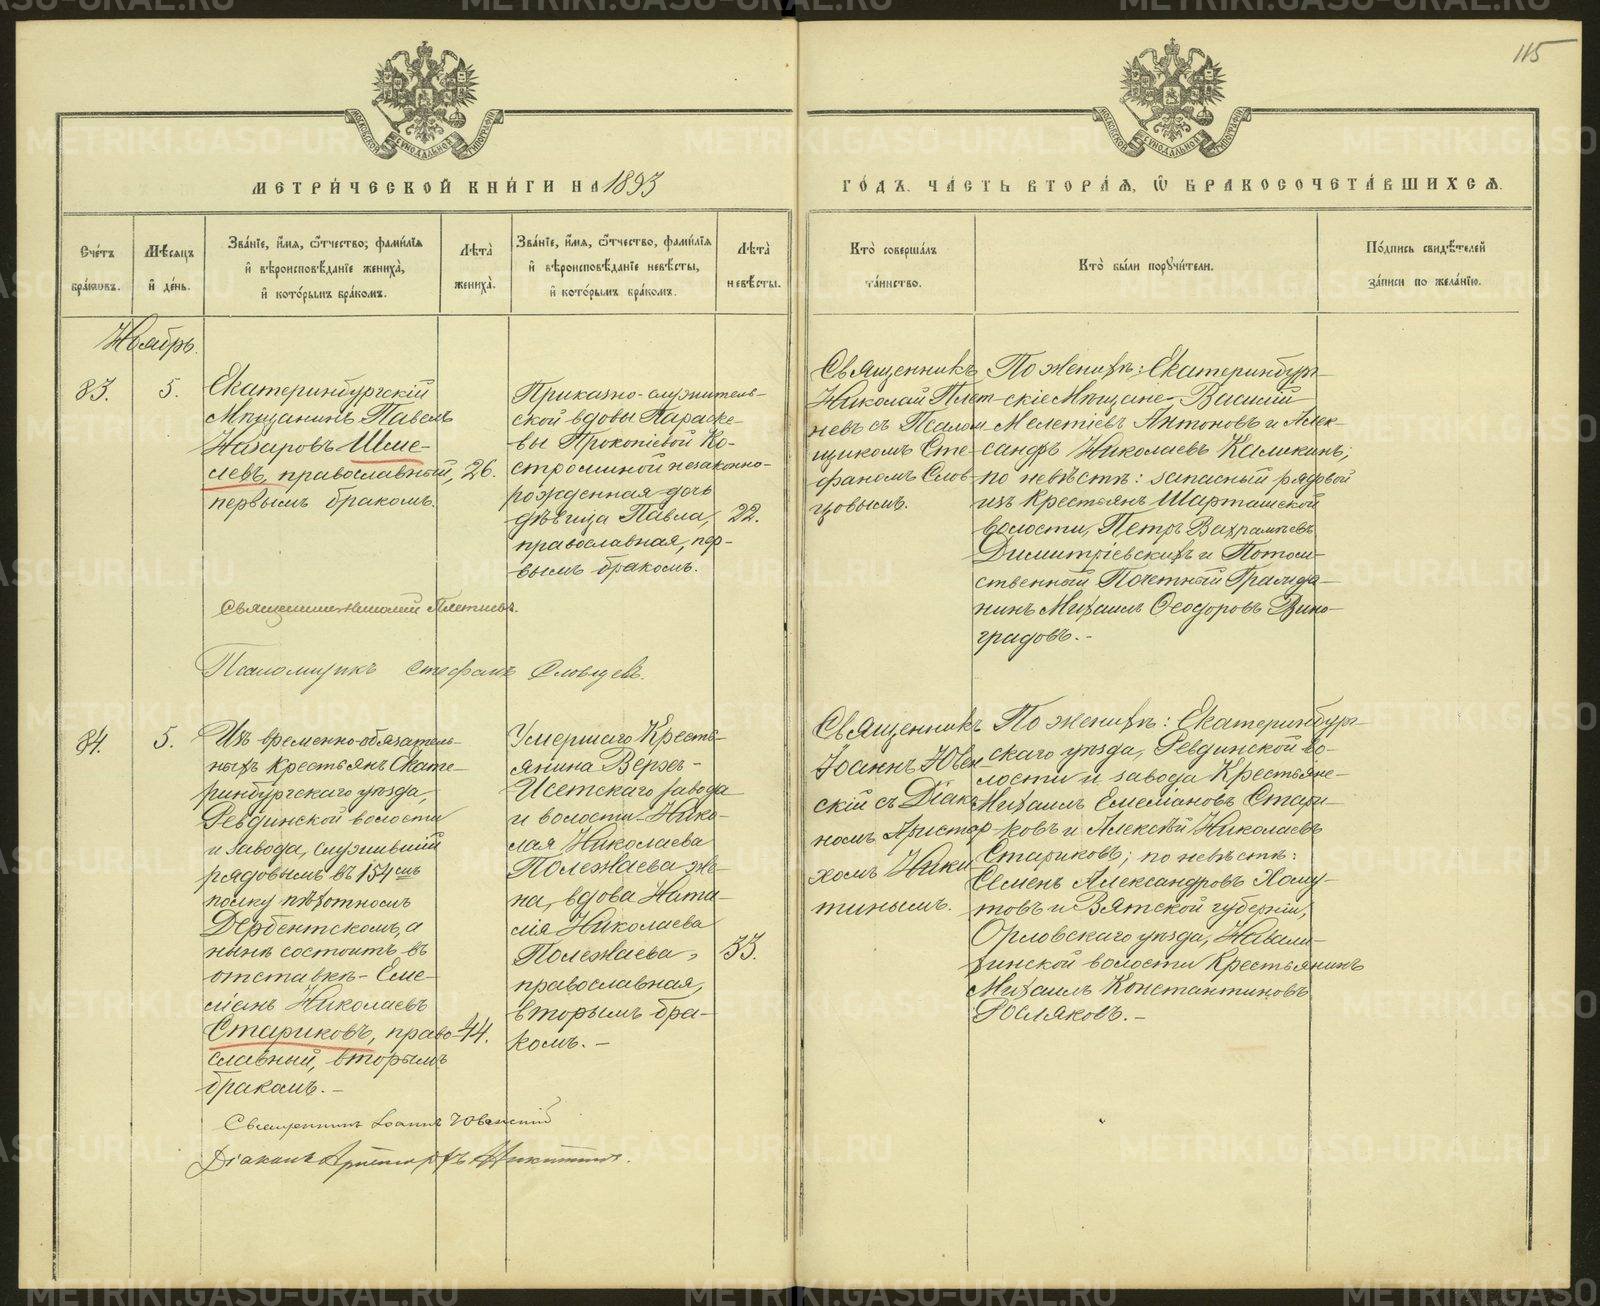 115
МОСКОВСКОЙ СѴНОДАЛЬНОЙ ТИПОГРАФІИ
МОСКОВСКОЙ СѴНОДАЛЬНОЙ ТИПОГРАФІИ
МЕТРИ́ЧЕСКОЙ КНИ́ГИ НА 1893
ГО́ДЪ, ЧА́СТЬ ВТОРА́Я, Ѽ БРАКОСОЧЕТА́ВШИХСЯ.
Сче́тъ
бра́ковъ.
Мѣ́сяцъ
и҆ де́нь.
Зва́нїе, и҆́мя, ѻ҆́тчество, фами́лїя
и҆ вѣроисповѣ́данїе жениха̀,
и҆ кото́рымъ бра́комъ.
Лѣта̀
жениха̀.
Зва́нїе, и҆́мя, ѻ҆́тчество, фами́лїя
и҆ вѣроисповѣ́данїе невѣ́сты,
и҆ кото́рымъ бра́комъ.
Лѣта̀
невѣ́сты.
Кто̀ соверша́лъ
та́инство.
Кто̀ бы́ли порꙋчи́тели.
По́дпись свидѣ́телей
за́писи по жела́нїю.
Ноябрь.
83.
5.
Екатеринбургскій
Мѣщанинъ Павелъ
Назаровъ Шме-
левъ, православный,
первымъ бракомъ.
26.
Приказно-служитель-
ской вдовы Параске-
вы Прокопіевой Ко-
строминой незаконно-
рожденная дочь
дѣвица Павла,
православная, пер-
вымъ бракомъ.
22.
Священникъ
Николай Плет-
невъ съ Псалом-
щикомъ Сте-
фаномъ Слов-
цовымъ.
По женихѣ: Екатеринбург-
скіе Мѣщане Василій
Мелетіевъ Антоновъ и Алек-
сандръ Николаевъ Калмкинъ;
по невѣстѣ: запасный рядовой
изъ крестьянъ Шарташской
волости, Петръ Вахрамѣевъ
Димитріевскихъ и Потом-
ственный Почетный Гражда-
нинъ Михаилъ Ѳеодоровъ Вино-
градовъ.-
Священникъ Николай Плетневъ.
Псаломщикъ Стефанъ Словцевъ.
84.
5.
Изъ временно-обязатель-
ныхъ крестьянъ Екате-
ринбургскаго уѣзда,
Ревдинской волости
и завода, служившій
рядовымъ въ 154мъ
полку пѣхотномъ
Дербентскомъ, а
нынѣ состоитъ въ
отставкѣ- Еме-
ліанъ Николаевъ
Стариковъ, право-
славный, вторымъ
бракомъ.-
44.
Умершаго Кресть-
янина Верхъ-
Исетскаго завода
и волости Нико-
лая Николаева
Полежаева же-
на, вдова Ната-
лія Николаева
Полежаева,
православная,
вторымъ бра-
комъ.-
33.
Священникъ
Іоаннъ Ювен-
скій съ Діако-
номъ Аристар-
хомъ Ники-
тинымъ.
По женихѣ: Екатеринбург-
скаго уѣзда, Ревдинской во-
лости и завода Крестьяне-
Михаилъ Емеліановъ Стари-
ковъ и Алексѣй Николаевъ
Стариковъ; по невѣстѣ:
Семенъ Александровъ Хому-
товъ и Вятской губерніи,
Орловскаго уѣзда,
волости Крестьянинъ
Михаилъ Константиновъ
Росляковъ.-
Священникъ Іоаннъ Ювенскій
Діаконъ Аристархъ Никитинъ.
METRIKI.GASO-URAL.RU